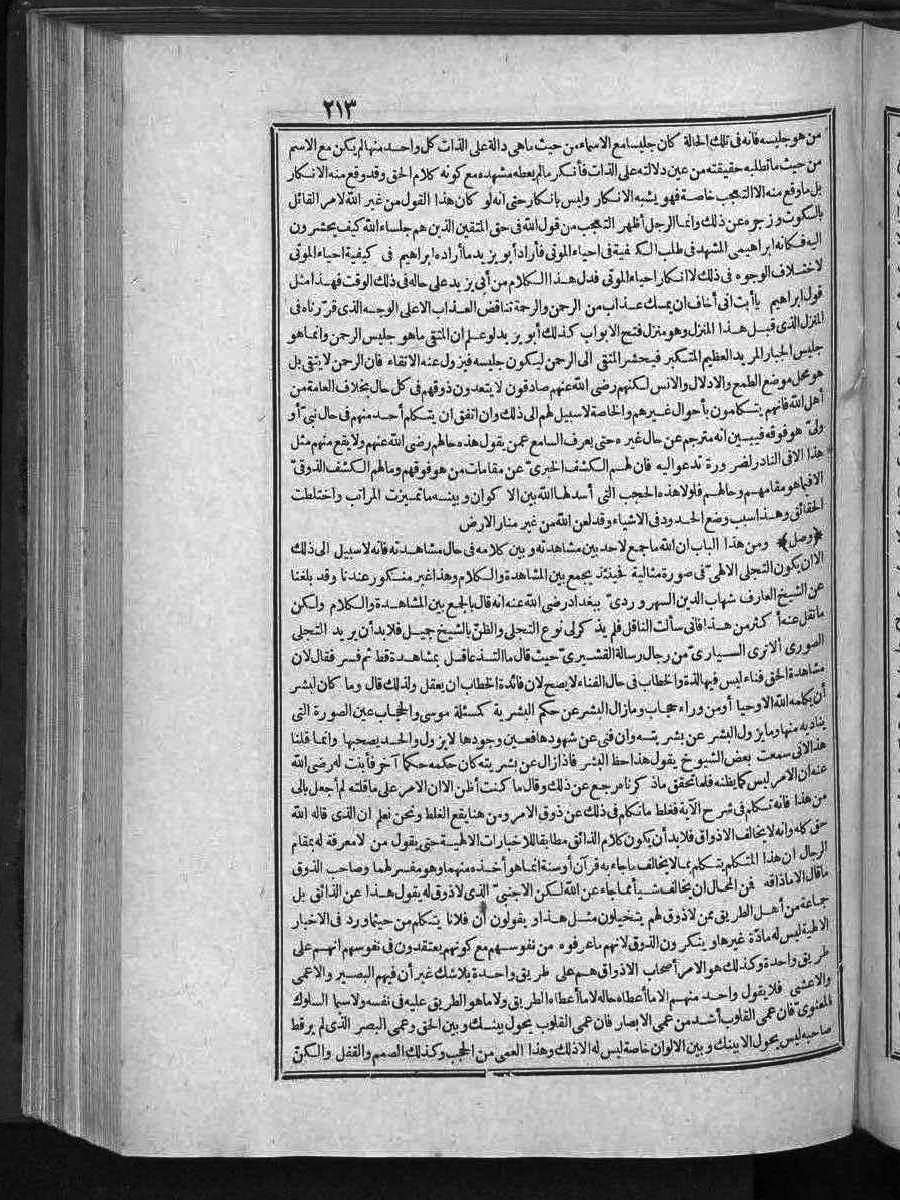 ٢١٣
من هو جليسه فانه فى تلك الحالة كان جليسا مع الاسماء من حيث ما هى دالة على الذات كل واحد منها لم يكن مع الاسم
من حيث ما تطلبه حقيقته من عين دلالته على الذات فأنكر مالم يعطه مشهده مع كونه كلام الحق وقد وقع منه الانكار
بل ما وقع منه الا التعجب خاصة فهو يشبه الانكار وليس بانكار حتى انه لو كان هذا القول من غير الله لامر القائل
بالسكوت وزجره عن ذلك وانما الرجل أظهر التعجب من قول الله فى حق المتقين الذين هم جلساء الله كيف يحشرون
اليه فكانه ابراهيمى المشهد فى طلب الكيفية فى احياء الموتى فأراد أبو يزيد ما أراده ابراهيم فى كيفية احياء الموتى
لاختلاف الوجوه فى ذلك لا انكار احياء الموتى فدل هذا الكلام من أبى يزيد على حاله فى ذلك الوقت فهذا مثل
قول ابراهيم يا أبت انى أخاف ان يمسك عذاب من الرحمن والرحمة تناقض العذاب الا على الوجه الذى قررناه فى
المنزل الذى قبل هذا المنزل وهو منزل فتح الابواب كذلك أبو يزيد لو علم ان المتقى ما هو جليس الرحمن وانما هو
جليس الجبار المريد العظيم المتكبر فيحشر المتقى الى الرحمن ليكون جليسه فيزول عنه الاتقاء فان الرحمن لا يتقى بل
هو محل موضع الطمع والادلال والانس لكنهم رضى الله عنهم صادقون لا يتعدون ذوقهم فى كل حال بخلاف العامة من
أهل الله فانهم يتكلمون بأحوال غيرهم والخاصة لا سبيل لهم الى ذلك وان اتفق ان يتكلم أحد منهم فى حال نبىّ أو
ولىّ هو فوقه فيبين انه مترجم عن حال غيره حتى يعرف السامع عمن يقول هذه حالهم رضى الله عنهم ولا يقع منهم مثل
هذا الا فى النادر لضرورة تدعو اليه فان لهم الكشف الخبرىّ عن مقامات من هو فوقهم وما لهم الكشف الذوقىّ
الا فيما هو مقامهم وحالهم فلولا هذه الحجب التى أسدلها الله بين الاكوان وبينه ما تميزت المراتب واختلطت
الحقائق وهذا سبب وضع الحدود فى الاشياء وقد لعن الله من غير منار الارض
﴿وصل﴾ ومن هذا الباب ان الله ما جمع لاحد بين مشاهدته وبين كلامه فى حال مشاهدته فانه لا سبيل الى ذلك
الا ان يكون التجلى الالهىّ فى صورة مثالية فحينئذ يجمع بين المشاهدة والكلام وهذا غير منكور عندنا وقد بلغنا
عن الشيخ العارف شهاب الدين السهروردىّ ببغداد رضى الله عنه انه قال بالجمع بين المشاهدة والكلام ولكن
ما نقل عنه أكثر من هذا فانى سألت الناقل فلم يذكر لى نوع التجلى والظنّ بالشيخ جميل فلا بد أن يريد التجلى
الصورى ألا ترى السيارىّ من رجال رسالة القشيرىّ حيث قال ما التذ عاقل بمشاهدة قط ثم فسر فقال لان
مشاهدة الحق فناء ليس فيها لذة والخطاب فى حال الفناء لا يصح لان فائدة الخطاب ان يعقل ولذلك قال وما كان لبشر
أن يكلمه الله الا وحيا أو من وراء حجاب وما زال البشر عن حكم البشرية كمسئلة موسى والحجاب عين الصورة التى
يناديه منها وما يزول البشر عن بشريته وان فنى عن شهودها فعين وجودها لا يزول والحد يصحبها وانما قلنا
هذا لانى سمعت بعض الشيوخ يقول هذا حظ البشر فاذا زال عن بشريته كان حكمه حكما آخر فأبنت له رضى الله
عنه ان الامر ليس كما يظنه فلما تحقق ما ذكرناه رجع عن ذلك وقال ما كنت أظن الا ان الامر على ما قلته لم أجعل بالى
من هذا فانه تكلم فى شرح الآية فغلط ما تكلم فى ذلك عن ذوق الامر ومن هنا يقع الغلط ونحن نعلم ان الذى قاله الله
حق كله وانه لا يخالف الاذواق فلا بد أن يكون كلام الذائق مطابقا للاخبارات الالهية حتى يقول من لا معرفة له بمقام
الرجال ان هذا المتكلم يتكلم بما لا يخالف ما جاء به قرآن أو سنة انما هو أخذه منهما وهو مفسر لهما وصاحب الذوق
ما قال الا ما ذاقه فمن المحال ان يخالف شيأ مما جاء عن الله لكن الاجنبىّ الذى لا ذوق له يقول هذا عن الذائق بل
جماعة من أهل الطريق ممن لا ذوق لهم يتخيلون مثل هذا ويقولون أن فلانا يتكلم من حيث ما ورد فى الاخبار
الالهية ليس له مادّة غيرها وينكرون الذوق لانهم ما عرفوه من نفوسهم مع كونهم يعتقدون فى نفوسهم انهم على
طريق واحدة وكذلك هو الامر أصحاب الاذواق هم على طريق واحدة بلا شك غير أن فيهم البصير والاعمى
والاعشى فلا يقول واحد منهم الا ما أعطاه حاله لا ما أعطاه الطريق ولا ما هو الطريق عليه فى نفسه ولا سيما السلوك
المعنوىّ فان عمى القلوب أشد من عمى الابصار فان عمى القلوب يحول بينك وبين الحق وعمى البصر الذى لم ير قط
صاحبه ليس يحول الا بينك وبين الالوان خاصة ليس له الا ذلك وهذا العمى من الحجب وكذلك الصمم والقفل والكنّ